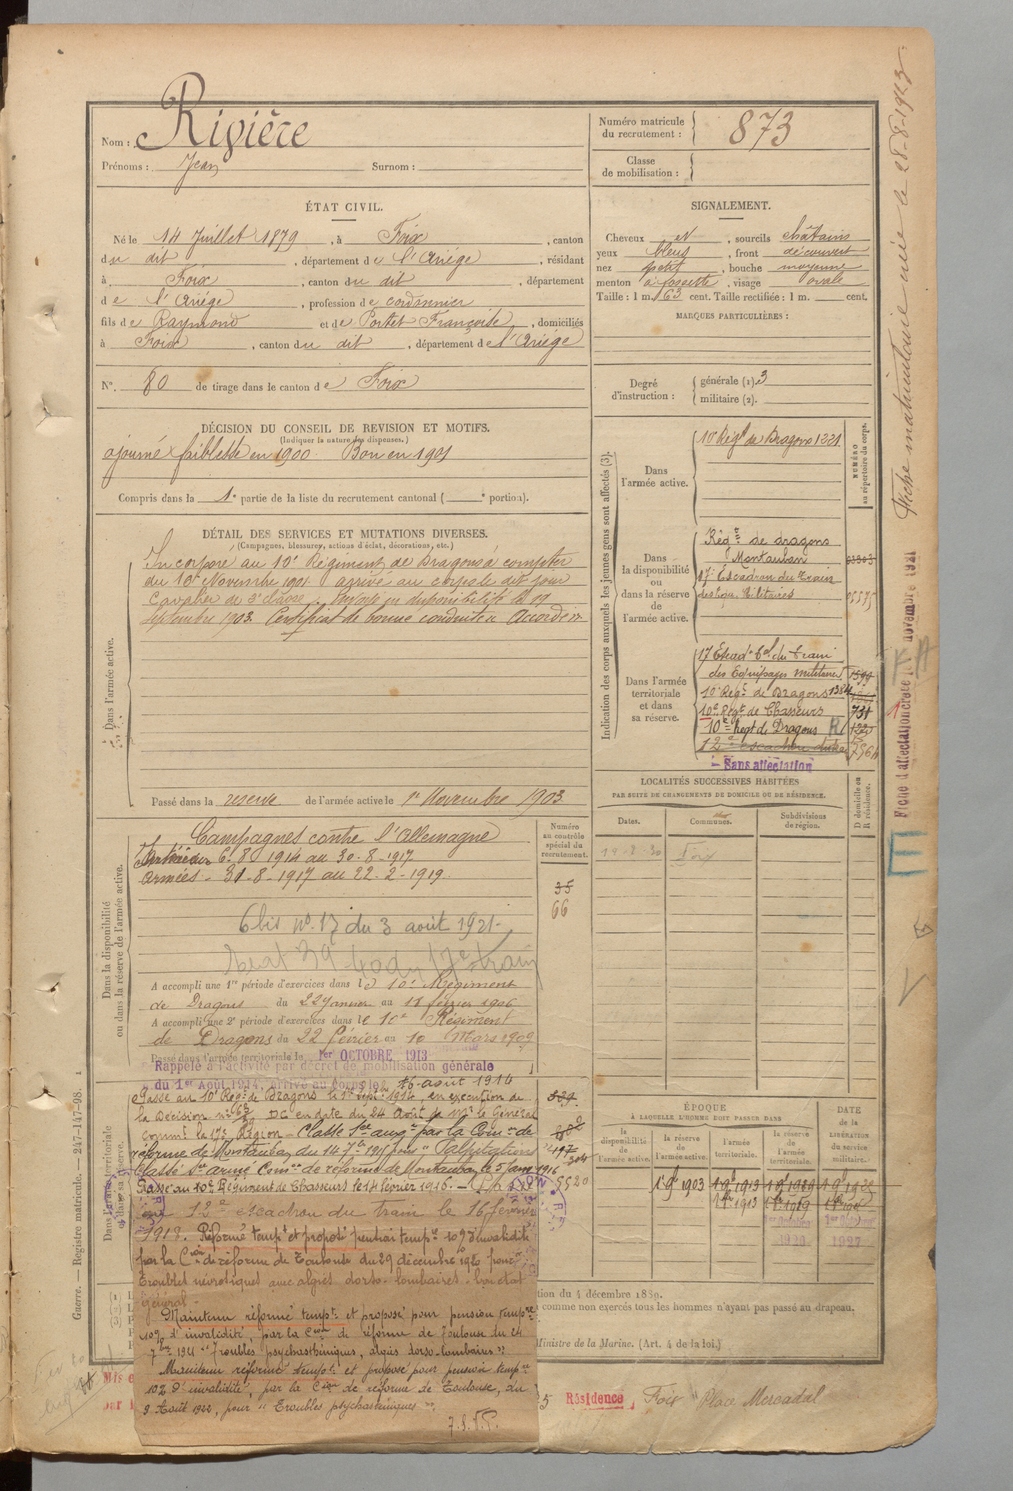 Nom : Rivière
Prénoms : Jean Surnom :
Numéro matricule du recrutement : 873
Classe de mobilisation :
ÉTAT CIVIL.
Né le 14 Juillet 1879, à Foix, canton
du dit, département de l'Ariége, résidant
à Foix, canton du dit, département
de l'Ariége, profession de cordonnier
fils de Raymond et de Portet Françoise, domiciliés
à Foix, canton du dit, département de l'Ariége
N°. 80 de tirage dans le canton de Foix
SIGNALEMENT.
Cheveux et, sourcils châtains
yeux bleus, front découvert
nez petit, bouche moyenne
menton à fossette, visage ovale
Taille : 1 m. 63 cent. Taille rectifiée : 1 m. cent.
MARQUES PARTICULIÈRES :
Degré d'instruction : générale (1). 3
militaire (2).
DÉCISION DU CONSEIL DE REVISION ET MOTIFS.
(Indiquer la nature des dispenses.)
ajourné faiblesse en 1900. Bon en 1901
Compris dans la 1e partie de la liste du recrutement cantonal ( e portion).
DÉTAIL DES SERVICES ET MUTATIONS DIVERSES.
(Campagnes, blessures, actions d'éclat, décorations, etc.)
Dans l'armée active.
Incorporé au 10e Régiment de Dragons à compter
du 10 Novembre 1901. arrivé au corps le dit jour
Cavalier de 2e classe. Envoyé en disponibilité le 19
septembre 1903. Certificat de bonne conduite Accordé
Passé dans la réserve de l'armée active le 1er Novembre 1903
Indication des corps auxquels les jeunes gens sont affectés (3).
NUMÉRO au répertoire du corps.
Dans l'armée active.
10e Régt de Dragons 1221
Dans la disponibilité ou dans la réserve de l'armée active.
Régt de dragons
Montauban
17e Escadron du Train
des Equ. Militaires
Dans l'armée territoriale et dans sa réserve.
17 Escad. du train
des Equipages militaires
10e Régt de Dragons 1384
10e Régt de Chasseurs 731
10e Regt de Dragons
12e escadron du train
Sans affectation
Dans la disponibilité ou dans la réserve de l'armée active.
Numéro au contrôle spécial du recrutement.
Campagnes contre l'Allemagne
Intérieur 6.8.1914 au 30-8-1917
Armées - 31-8-1917 au 22-2-1919
35
66
6 bis no. 17 du 3 août 1921.
A accompli une 1re période d'exercices dans le 10e Régiment
de Dragons du 22 Janvier au 18 février 1906
A accompli une 2e période d'exercices dans le 10e Régiment
de Dragons du 22 février au 10 Mars 1909
Passé dans l'armée territoriale le 1er OCTOBRE 1913
Rappelé à l'activité par décret de mobilisation générale
du 1er Août 1914, arrivé au corps le 6 août 1914
Passé au 10e Rég. de Dragons le 1er Septbre 1914, en exécution de
la Décision n° 63 DC en date du 24 Août de Mr le Général
Commt la 17e Région - Classé Sce auxre par la Comon de
réforme de Montauban du 14 7bre 1915 pour "Palpitations"
Classé Sce armé Comon de réforme de Montauban le 5 janv 1916
Passé au 10e Régiment de Chasseurs le 14 février 1916.
12e escadron du train le 16 février
1918. Réformé tempre et proposé pension tempre 10% d'invalidité
par la Cion de réforme de Toulouse du 29 décembre 1920 pour
Troubles névrosiques avec algies dorso-lombaires. bon état
général.
Maintenu réformé tempre et proposé pour pension tempre
10% d'invalidité, par la Cion de réforme de Toulouse du 24
7bre 1921 "Troubles psychasthéniques, algies dorso-lombaires".
Maintenu réformé tempre et proposé pour pension tempre
10% d'invalidité, par la Cion de réforme de Toulouse, du
9 Août 1922, pour "Troubles psychasteniques".
LOCALITÉS SUCCESSIVES HABITÉES
PAR SUITE DE CHANGEMENTS DE DOMICILE OU DE RÉSIDENCE.
D domicile ou R résidence.
Dates. Communes. Subdivisions de région.
19.2.30 Foix
ÉPOQUE
À LAQUELLE L'HOMME DOIT PASSER DANS
DATE DE LA LIBÉRATION DU service militaire.
la disponibilité de l'armée active. la réserve de l'armée active. l'armée territoriale. la réserve de l'armée territoriale.
1er 9bre 1903
1926 1927
tion du 4 décembre 1889.
comme non exercés tous les hommes n'ayant pas passé au drapeau.
Ministre de la Marine. (Art. 4 de la loi.)
Résidence Foix "Place Mercadal
Guerre. — Registre matricule. — 247-147-98.
Fiche matriculaire créée le 28-8-1923